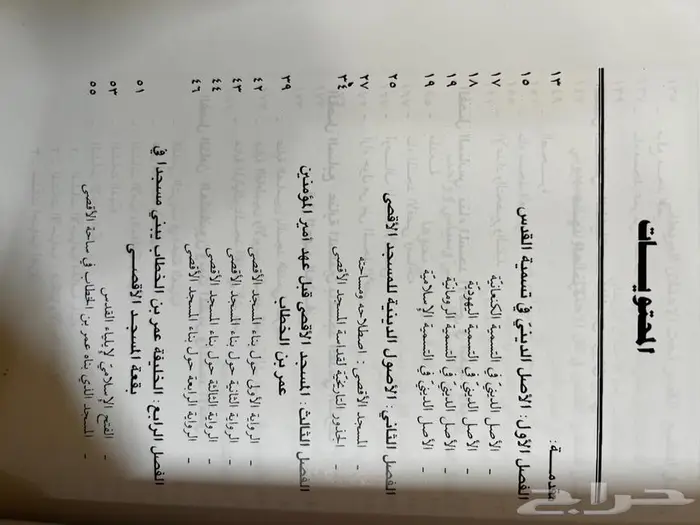 المحتويــات
مقدمـــة : ١٣
الفصل الأول: الأصل الديني في تسمية القدس ١٥
- الأصل الديني في التسمية الكنعانية ١٧
- الأصل الديني في التسمية اليهودية ١٨
- الأصل الديني في التسمية الرومانية ١٩
- الأصل الديني في التسمية الإسلامية ١٩
الفصل الثاني: الأصول الدينية للمسجد الأقصى ٢٥
- المسجد الأقصى: اصطلاحه ومساحته ٢٧
- الجذور التاريخية لقداسة المسجد الأقصى ٣٤
الفصل الثالث: المسجد الأقصى قبل عهد أمير المؤمنين
عمر بن الخطاب ٣٩
- الرواية الأولى حول بناء المسجد الأقصى ٤٢
- الرواية الثانية حول بناء المسجد الأقصى ٤٣
- الرواية الثالثة حول بناء المسجد الأقصى ٤٤
- الرواية الرابعة حول بناء المسجد الأقصى ٤٦
الفصل الرابع: الخليفة عمر بن الخطاب يبني مسجدا في
بقعة المسجد الأقصــى ٥١
- الفتح الإسلامي لإيلياء القدس ٥٣
- المسجد الذي بناه عمر بن الخطاب في ساحة الأقصى ٥٥
حراج